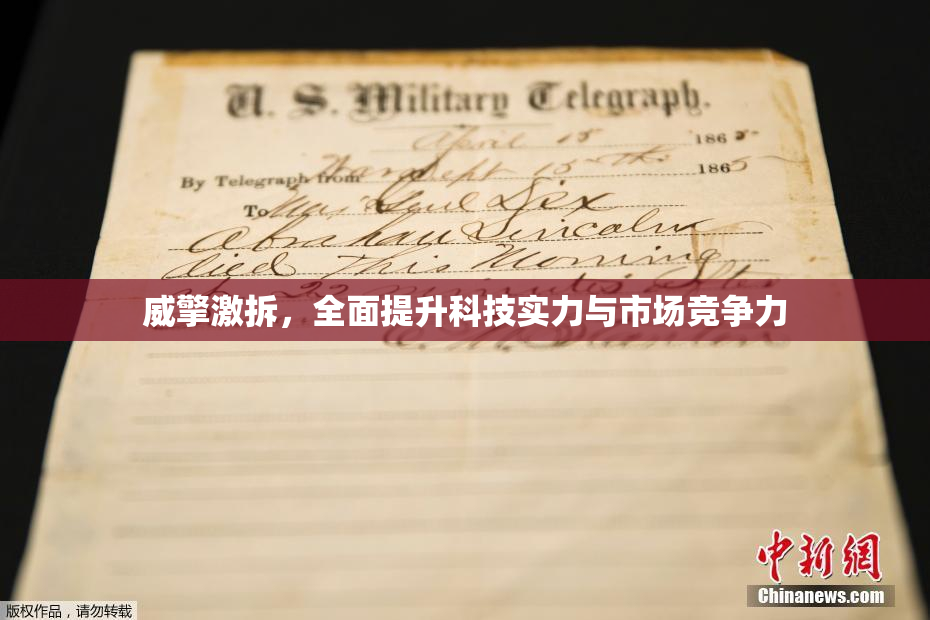 U. S. Military Telegraph.
April 15 1865
By Telegraph from War Dept 15th 1865
To Maj Genl Dix
Abraham Lincoln
died This Morning
at 22 minutes after
威擎激拆，全面提升科技实力与市场竞争力
E. M. Stanton
中新网
Chinanews.com
版权作品，请勿转载